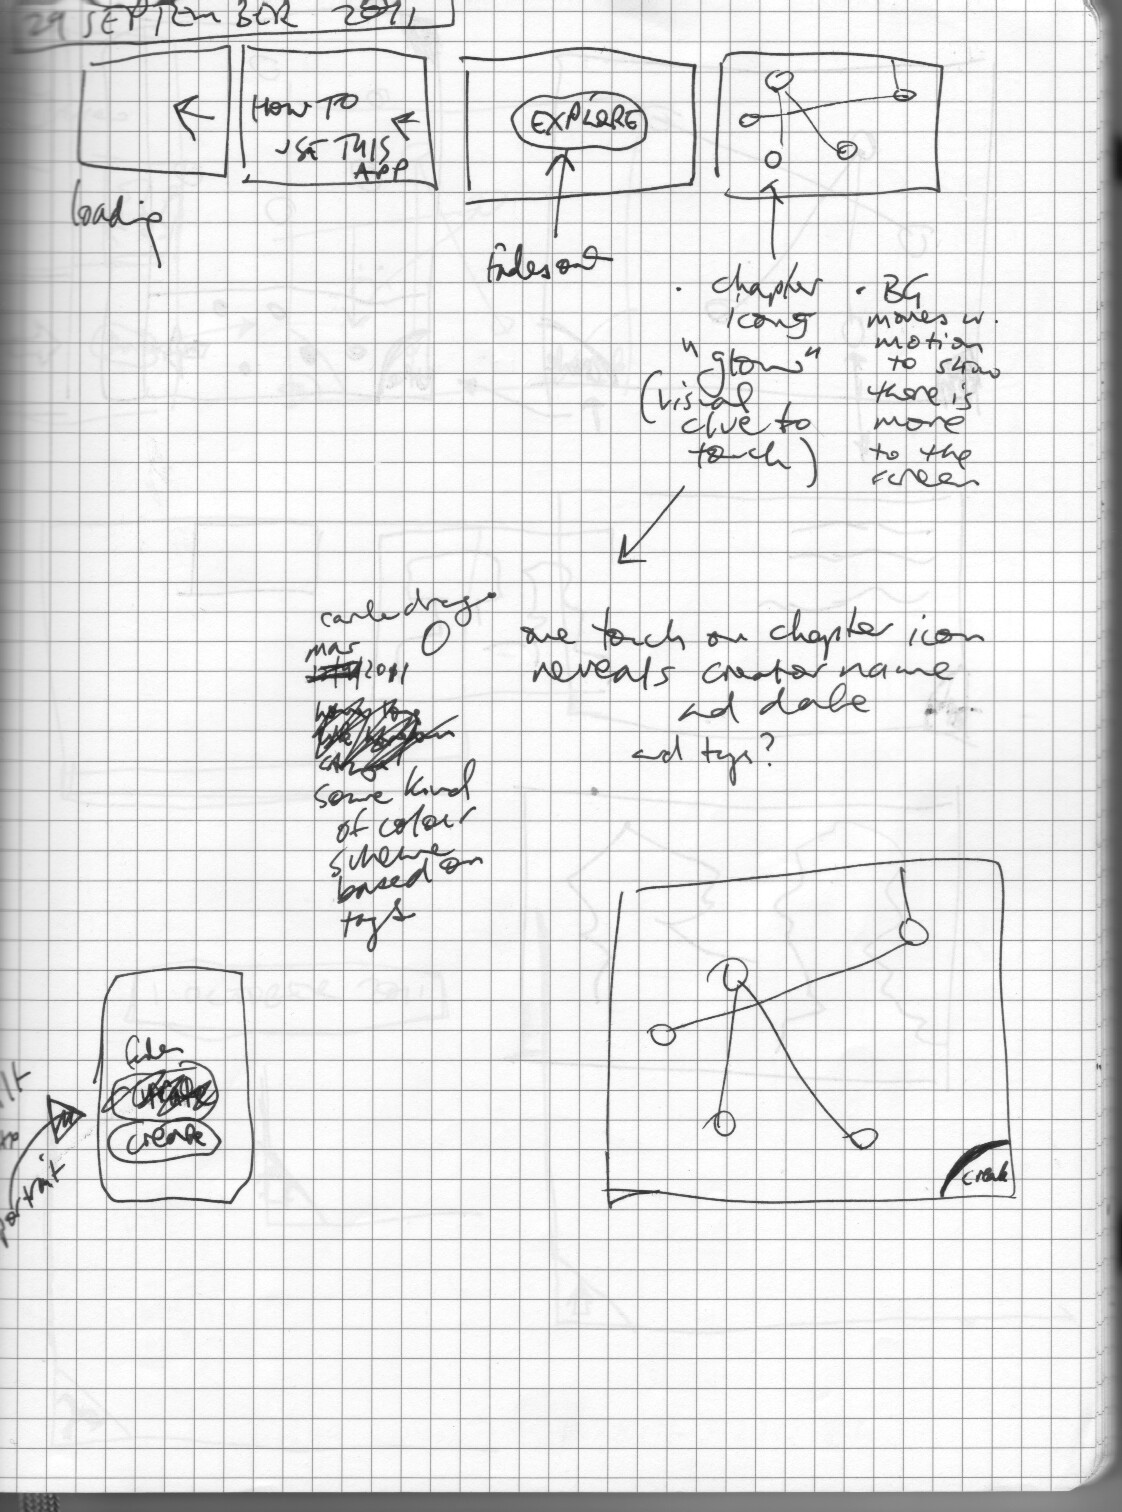 29 SEPTEMBER 2011
HOW TO
USE THIS
APP
EXPLORE
loading
Fades out
• chapter
icons
"glow"
(visual
clue to
touch)
• BG
moves w.
motion
to show
there is
more
to the
screen
mar
2011
some kind
of colour
scheme
based on
tags
one touch on chapter icon
reveals creator name
and date
and tags?
create
portrait
create